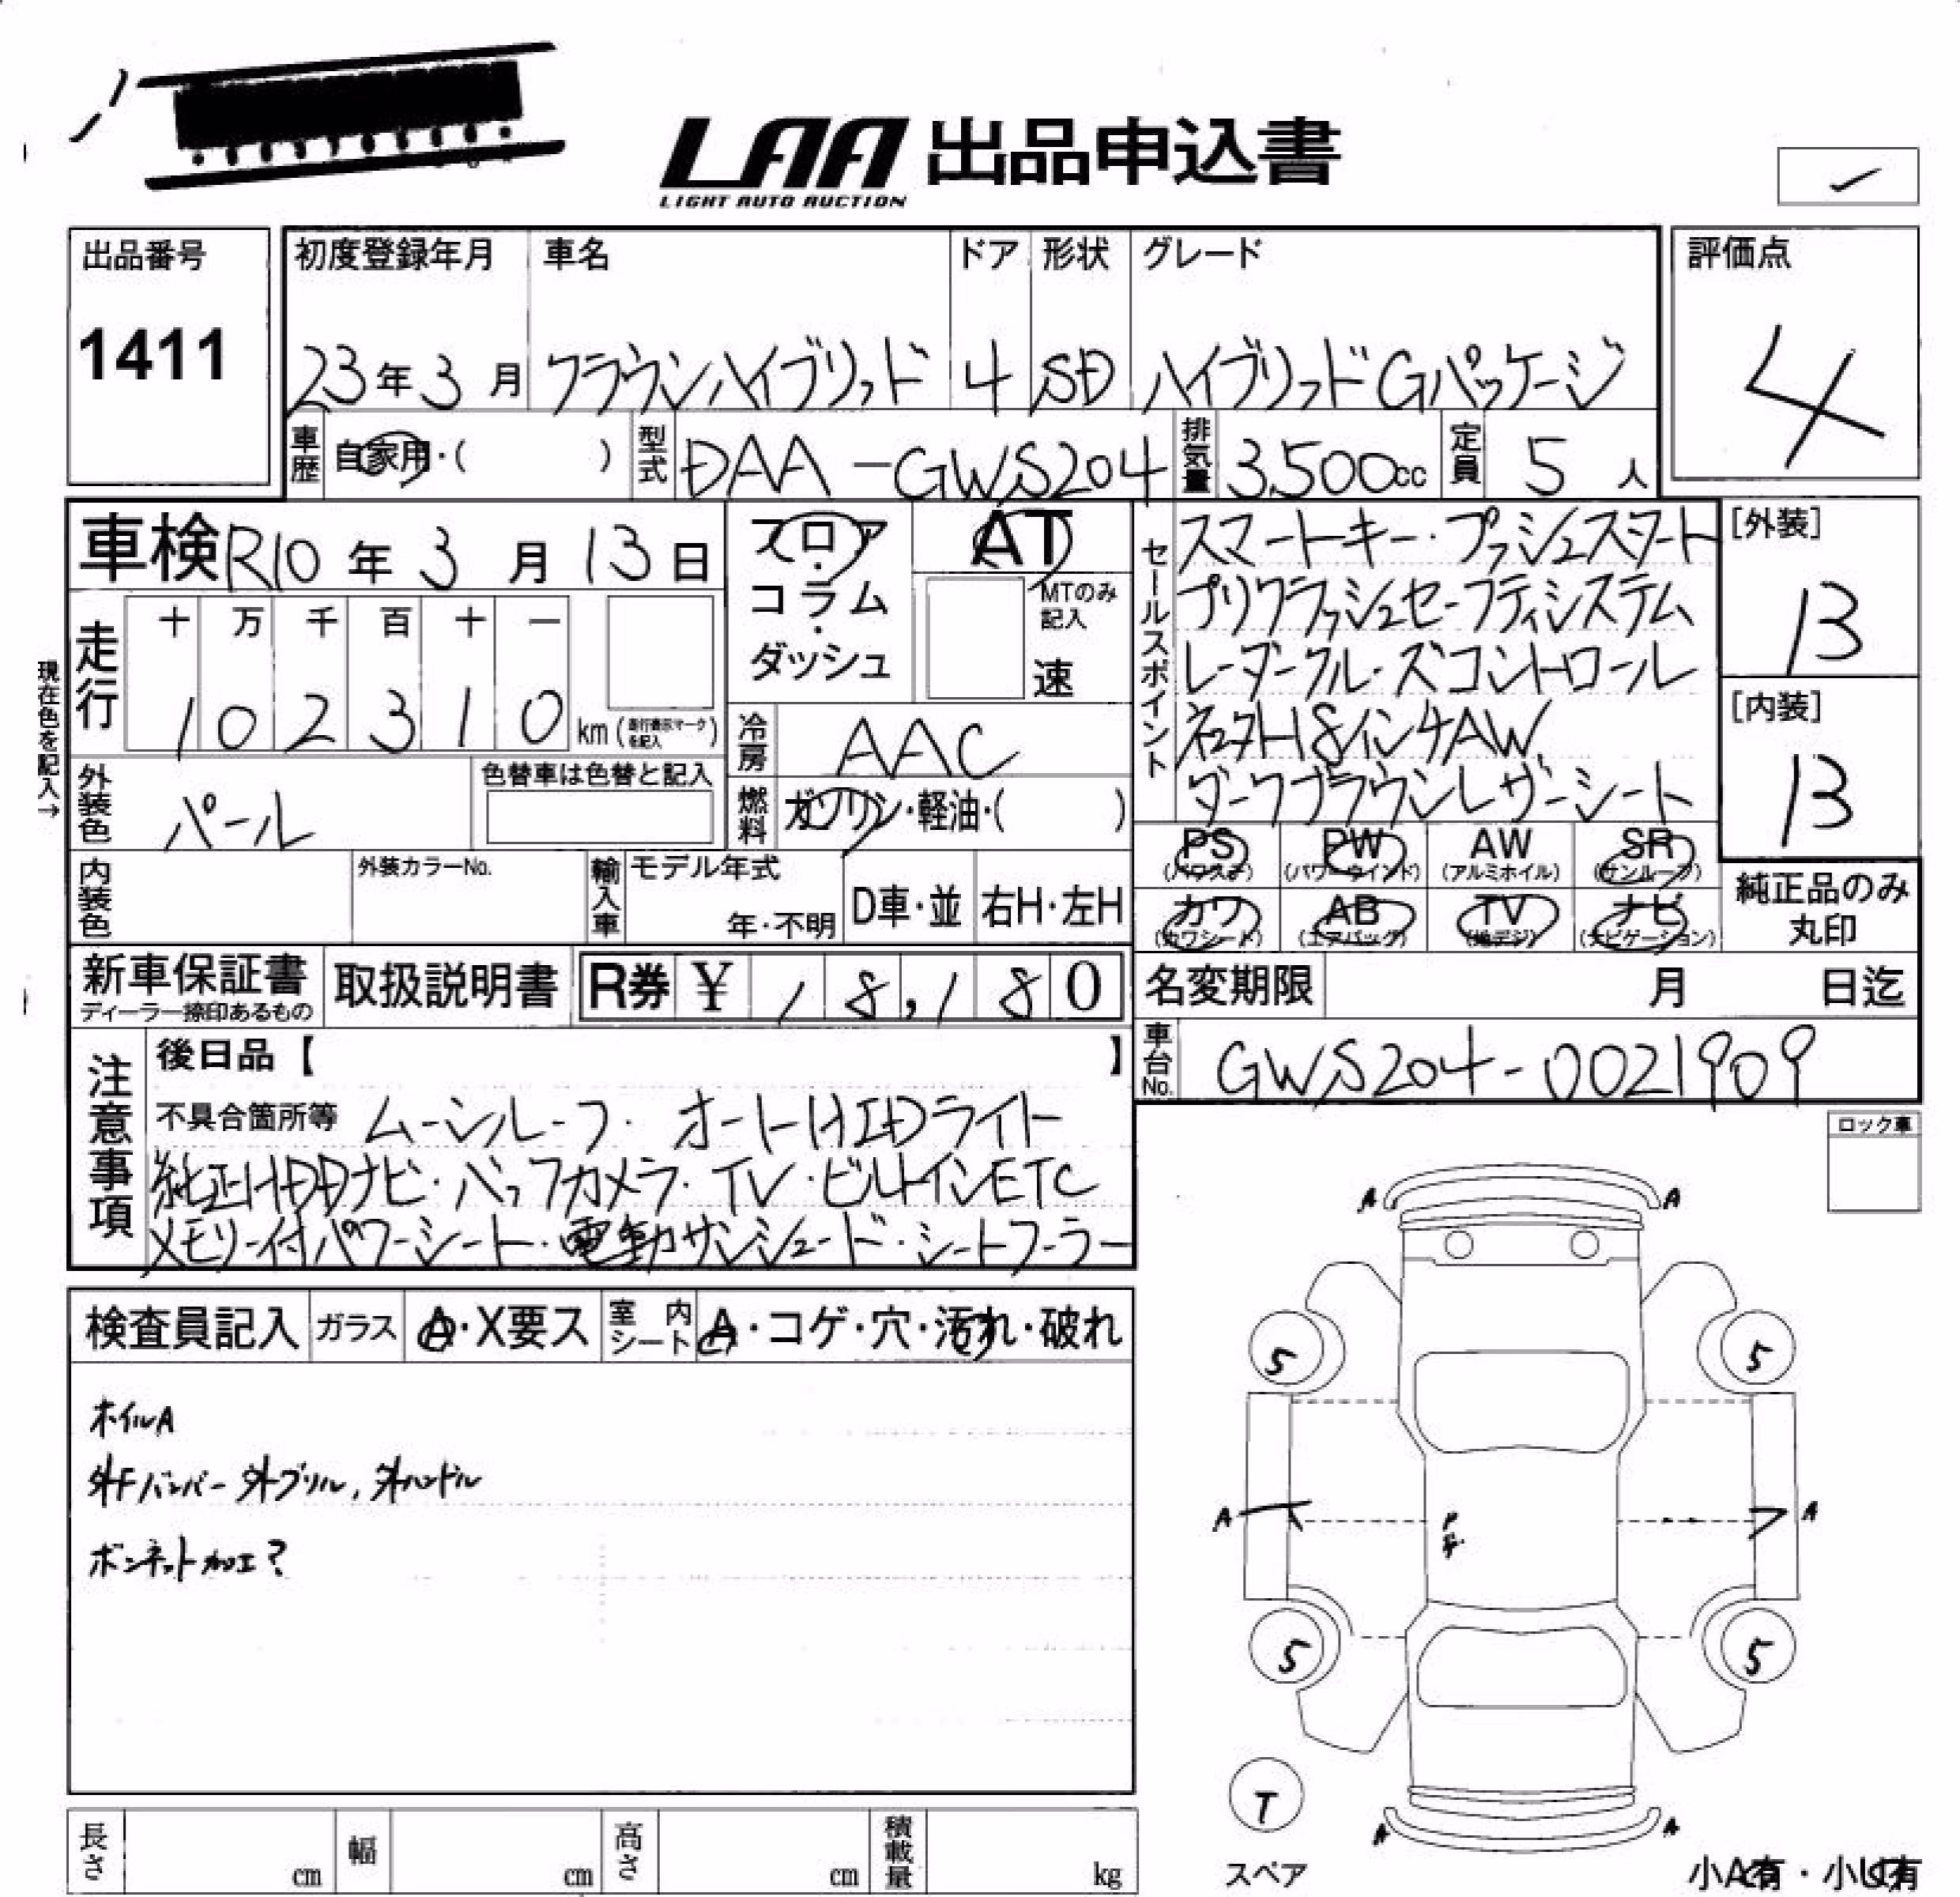 LAA 出品申込書
LIGHT AUTO AUCTION
出品番号 初度登録年月 車名 ドア 形状 グレード 評価点
1411 23年3月 クラウンハイブリッド 4 SD ハイブリッドGパッケージ 4
車歴 自家用・( ) 型式 DAA-GWS204 排気量 3,500cc 定員 5人
車検 R10年3月13日
フロア・コラム・ダッシュ
AT
MTのみ記入
速
走行 十 万 千 百 十 一
1 0 2 3 1 0 km (走行表示マークを記入)
現在色を記入→
外装色 パール 色替車は色替と記入
冷房 AAC
燃料 ガソリン・軽油・( )
セールスポイント
スマートキー・プッシュスタート
プリクラッシュセーフティシステム
レーダークルーズコントロール
社外18インチAW
ダークブラウンレザーシート
[外装]
B
[内装]
B
PS PW AW SR
(パワステ) (パワーウインド) (アルミホイル) (サンルーフ)
カワ AB TV ナビ
(カワシート) (エアバッグ) (地デジ) (ナビゲーション)
純正品のみ
丸印
内装色 外装カラーNo. 輸入車 モデル年式 年・不明 D車・並 右H・左H
新車保証書 取扱説明書 R券 ¥ 18,180
ディーラー捺印あるもの
名変期限 月 日迄
車台No. GWS204-0021909
注意事項
後日品【 】
不具合箇所等 ムーンルーフ・オートHIDライト
純正HDDナビ・バックカメラ・TV・ビルトインETC
メモリー付パワーシート・電動サンシェード・シートクーラー
ロック車
検査員記入 ガラス A・X要ス 室内シート A・コゲ・穴・汚れ・破れ
ホイルA
外Fバンパー 外グリル, 外ハンドル
ボンネット加工?
A A
5 5
A A
5 5
T
スペア
A A
長さ cm 幅 cm 高さ cm 積載量 kg
小A有・小U有